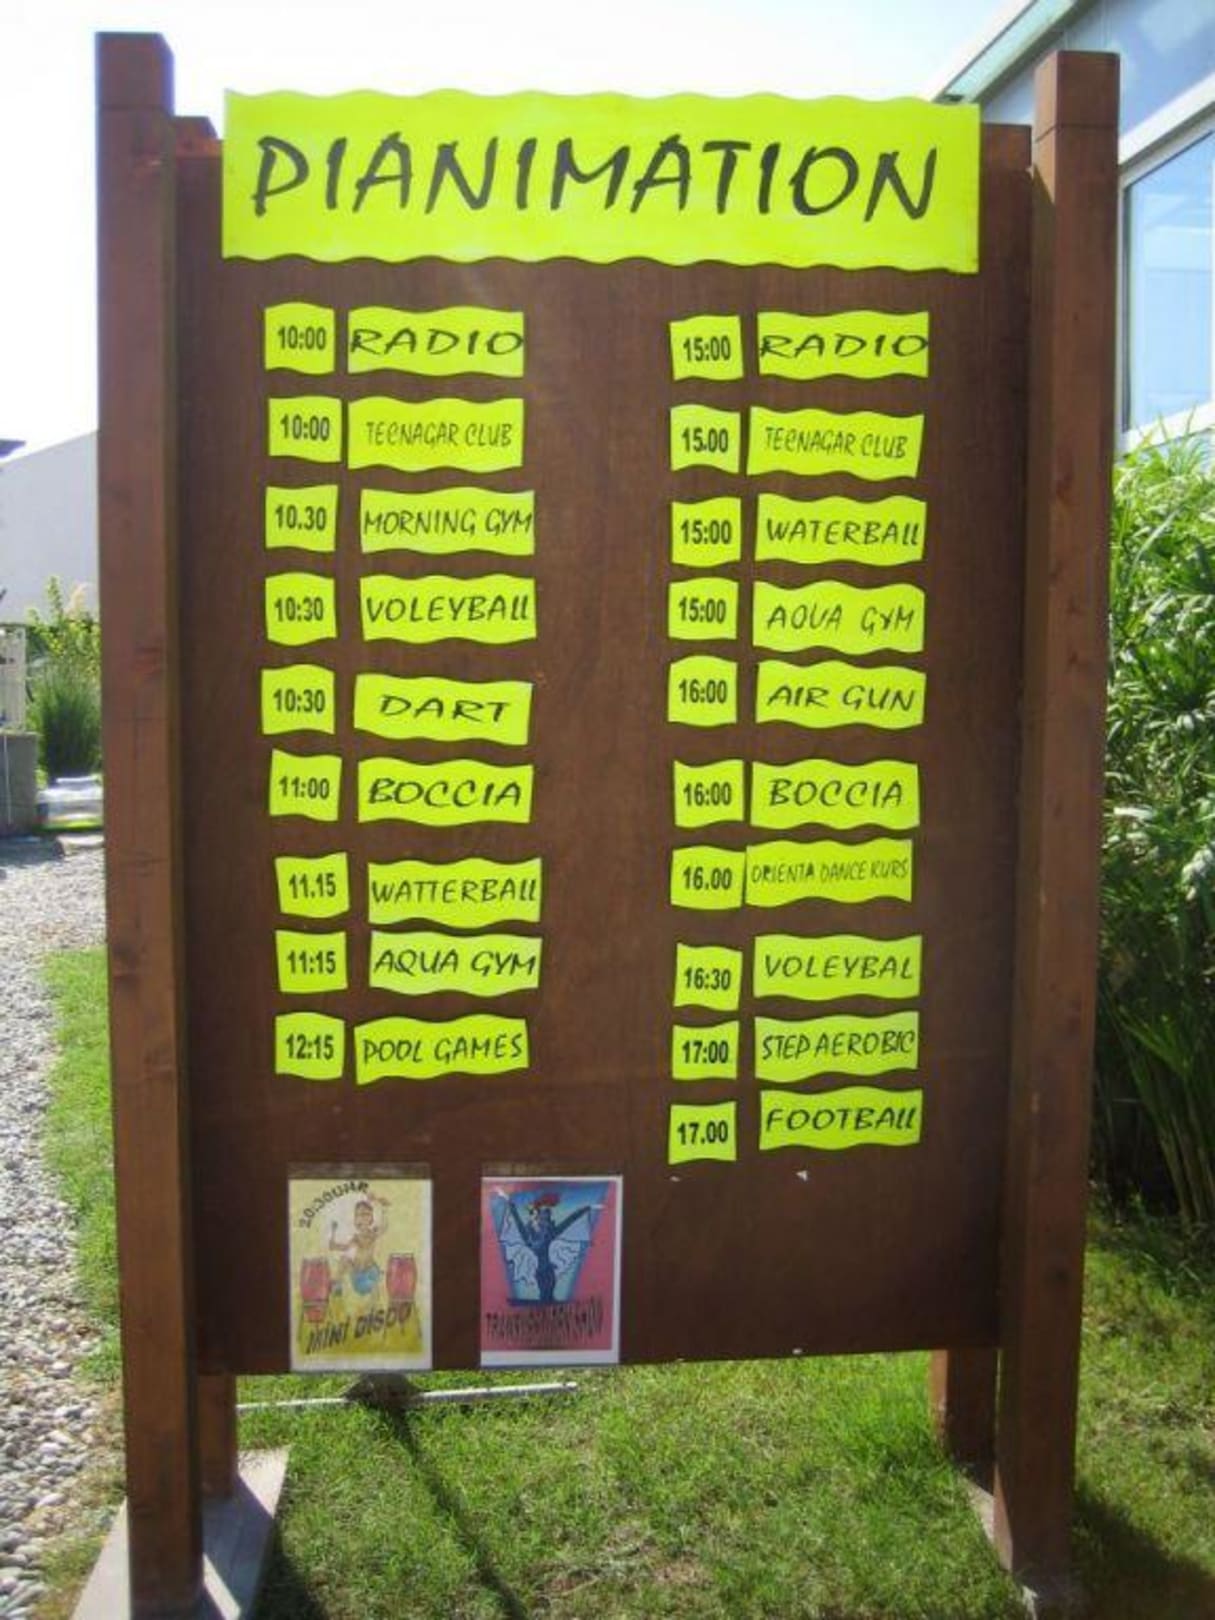 PIANIMATION
10:00 RADIO
10:00 TECNAGAR CLUB
10.30 MORNING GYM
10:30 VOLEYBALL
10:30 DART
11:00 BOCCIA
11.15 WATTERBALL
11:15 AQUA GYM
12:15 POOL GAMES
15:00 RADIO
15.00 TECNAGAR CLUB
15:00 WATERBALL
15:00 AQUA GYM
16:00 AIR GUN
16:00 BOCCIA
16.00 ORIENTA DANCE KURS
16:30 VOLEYBAL
17:00 STEP AEROBIC
17.00 FOOTBALL
MINI DISCO